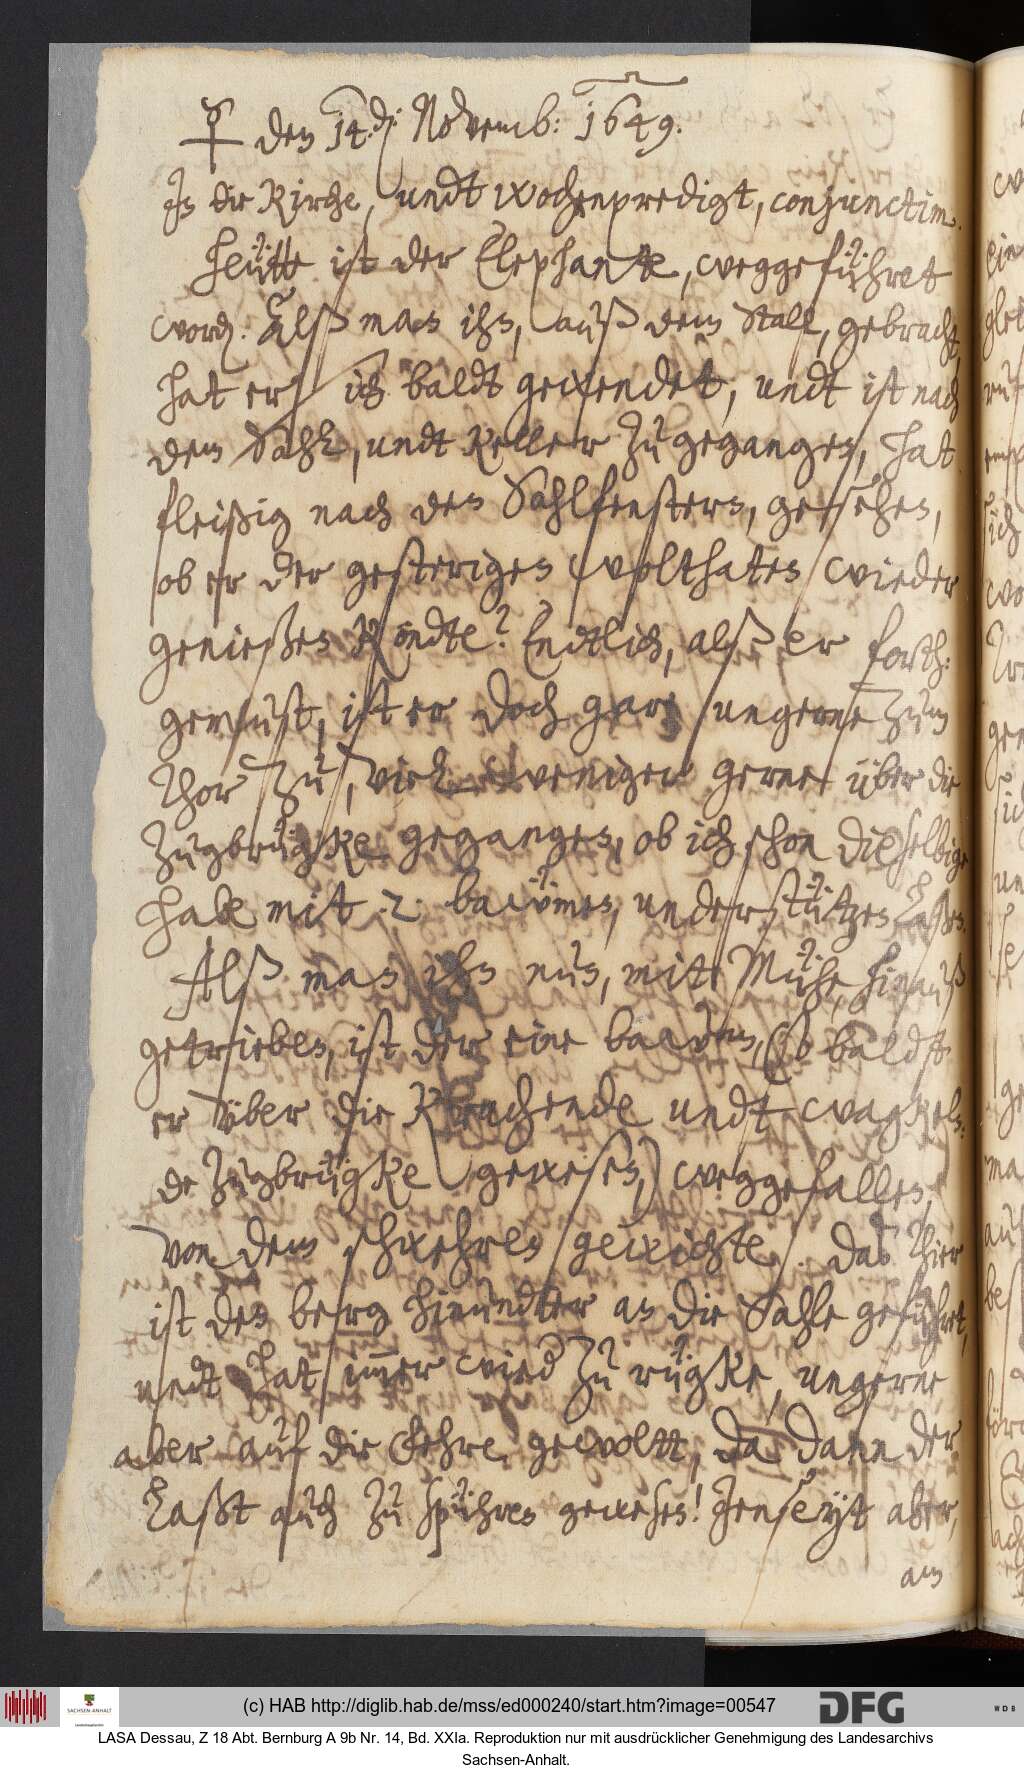 ☿ den 14.d: Novemb: 1649.
In die Kirche, undt wochenpredigt, conjunctim.
Heütte ist der Elephante, weggeführet
word. Alß man ihn, auß dem Stall, gebracht,
hat er sich baldt gewendet, undt ist nach
dem Sahl, undt Keller zu gegangen, hat
fleißig nach den Sahlfenstern, gesehen,
ob er der gesterigen wolthaten wieder
genießen köndte? Endtlich, alß er forth:
gemust, ist er doch gar ungerne zum
Thor zu, viel weniger gerne über die
Zugbrügke gegangen, ob ich schon dieselbige
habe mit .2. bawmen, understützen laßen.
Alß man ihn nun, mitt Mühe, hinauß
getrieben, ist der eine bawm, (so baldt
er über die krachende undt wagkeln:
de Zugbrügke gewesen,) weggefallen,
von dem schwehren gewichte. Das Thier
ist den berg hinundter an die Sahle geführet,
undt hat immer wied zu rügke, ungerne
aber auf die Fehre gewoltt, da dann der
Last auch zu spühren gewesen! Jenseyt aber,
am
(c) HAB http://diglib.hab.de/mss/ed000240/start.htm?image=00547
SACHSEN-ANHALT
DFG
WDB
LASA Dessau, Z 18 Abt. Bernburg A 9b Nr. 14, Bd. XXIa. Reproduktion nur mit ausdrücklicher Genehmigung des Landesarchivs
Sachsen-Anhalt.